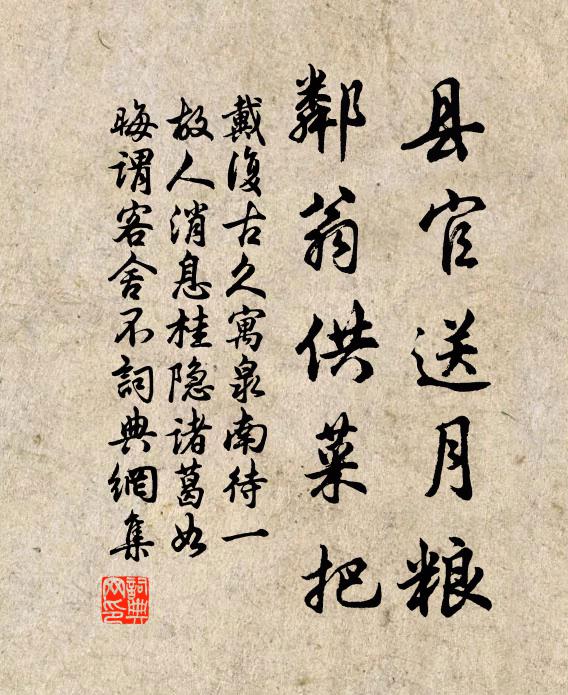 县官送月粮
鄰翁供菜把
戴復古久寓泉南待一
故人消息桂隐诸葛如
晦谓客舍不詞典網集
詞典网印